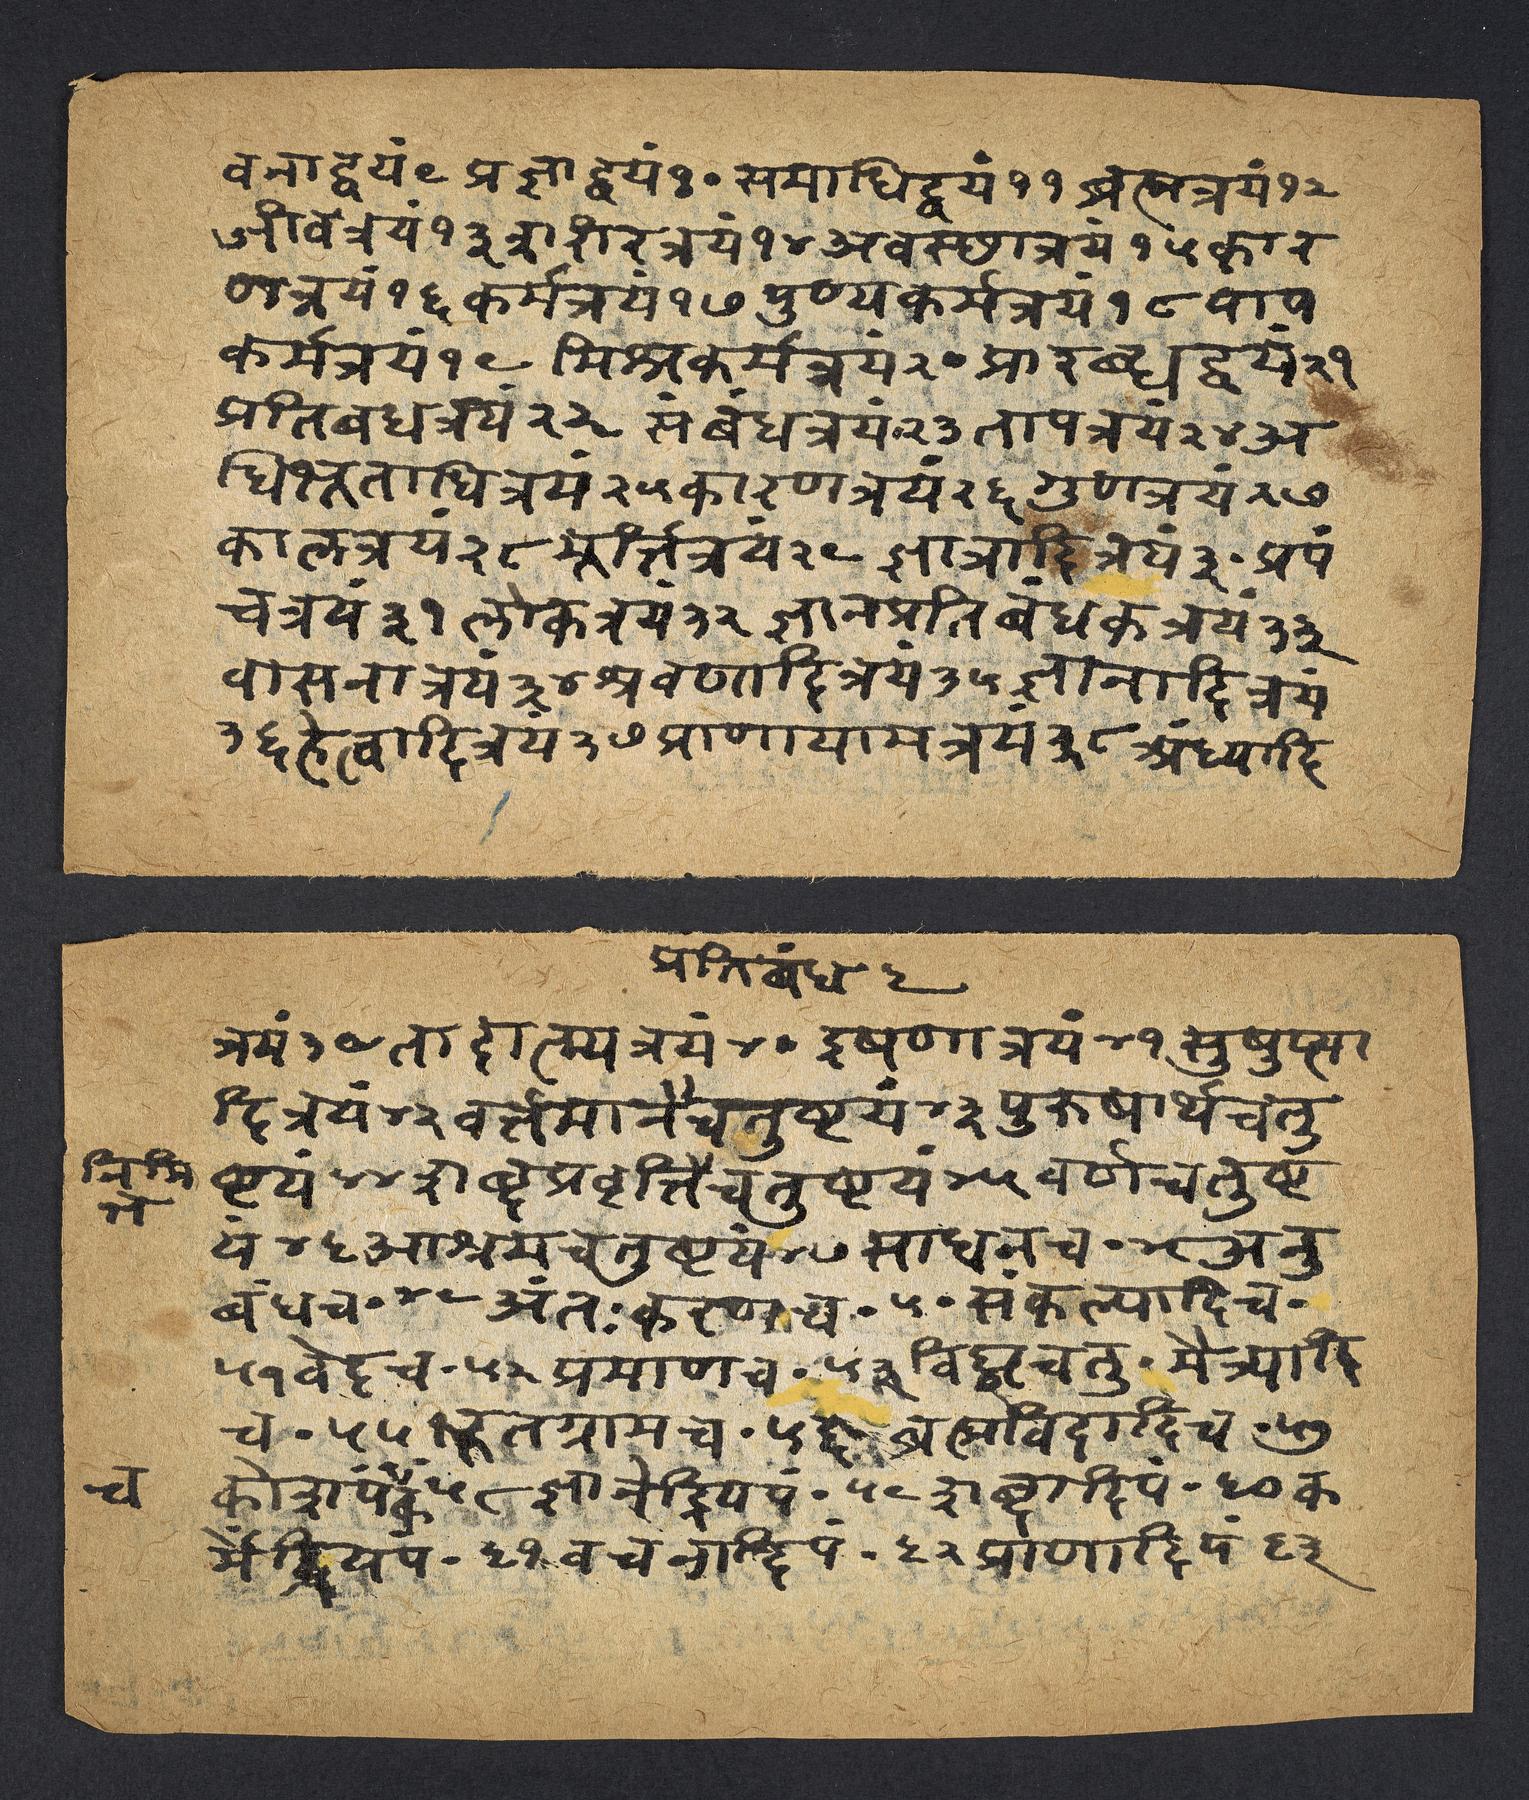 वनाद्वयं९ प्रज्ञाद्वयं१॰ समाधिद्वयं११ आत्मत्रयं१२
जीवत्रयं१३ शरीरत्रयं१४ अवस्छात्रयं१५ कार
णत्रयं१६ कर्मत्रयं१७ पुण्यकर्मत्रयं१८ पाप
कर्मत्रयं१९ मिश्रकर्मत्रयं२० प्रारब्धद्वयं२१
प्रतिबधत्रयं२२ संबंधत्रयं२३ तापत्रयं२४ अ
धिभूताधित्रयं२५ कारणत्रयं२६ गुणत्रयं२७
कालत्रयं२८ मूर्त्तित्रयं२९ ज्ञात्रादित्रयं३॰ प्रपं
चत्रयं३१ लोकत्रयं३२ ज्ञानप्रतिबंधकत्रयं३३
वासनात्रयं३४ श्रवणादित्रयं३५ ज्ञानादित्रयं
३६ हेत्वादित्रयं३७ प्राणायामत्रयं३८ आंध्यादि
प्रतिबंध ६
त्रयं३९ तादात्म्यत्रयं४॰ इषणात्रयं४१ सुषुप्त्या
दित्रयं४२ वर्त्तमानचतुष्टयं४३ पुरुषार्थचतु
निमि
त्त
ष्टयं४४ शब्दप्रवृत्तिचतुष्टयं४५ वर्णचतुष्ट
यं४६ आश्रमचतुष्टयं४७ साधनच॰४८ अनु
बंधच॰४९ अंतःकरणच॰५॰ संकल्पादिच॰
५१ वेदच॰५२ प्रमाणच॰५३ विघ्नचतु॰ मैत्र्यादि
च॰५५ भूतग्रामच॰५६ ब्रह्मविदादिच॰५७
च
कोशपंकं५८ ज्ञानेंद्रियपं॰५९ शब्दादिपं॰६० क
र्मेंद्रियपं॰६१ वचनादिपं॰६२ प्राणादिपं६३